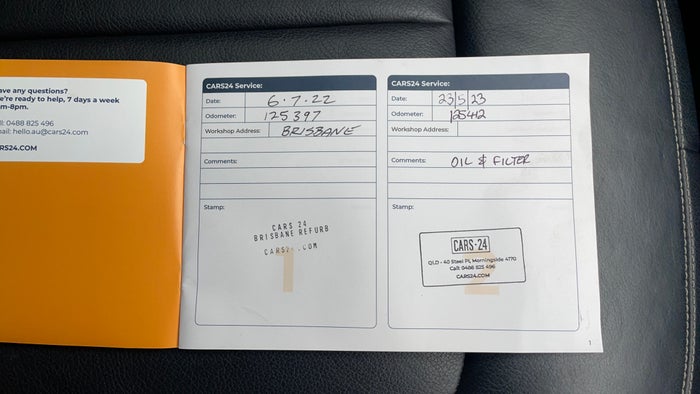 ave any questions?
e're ready to help, 7 days a week
m-8pm.
ll: 0488 825 496
ail: hello.au@cars24.com
RS24.COM
CARS24 Service:
Date: 6.7.22
Odometer: 125397
Workshop Address: BRISBANE
Comments:
Stamp:
CARS 24
BRISBANE REFURB
CARS24.COM
1
CARS24 Service:
Date: 23/5/23
Odometer: 125412
Workshop Address:
Comments: OIL & FILTER
Stamp:
CARS·24
QLD - 40 Steel Pl, Morningside 4170
Call: 0488 825 496
CARS24.COM
2
1